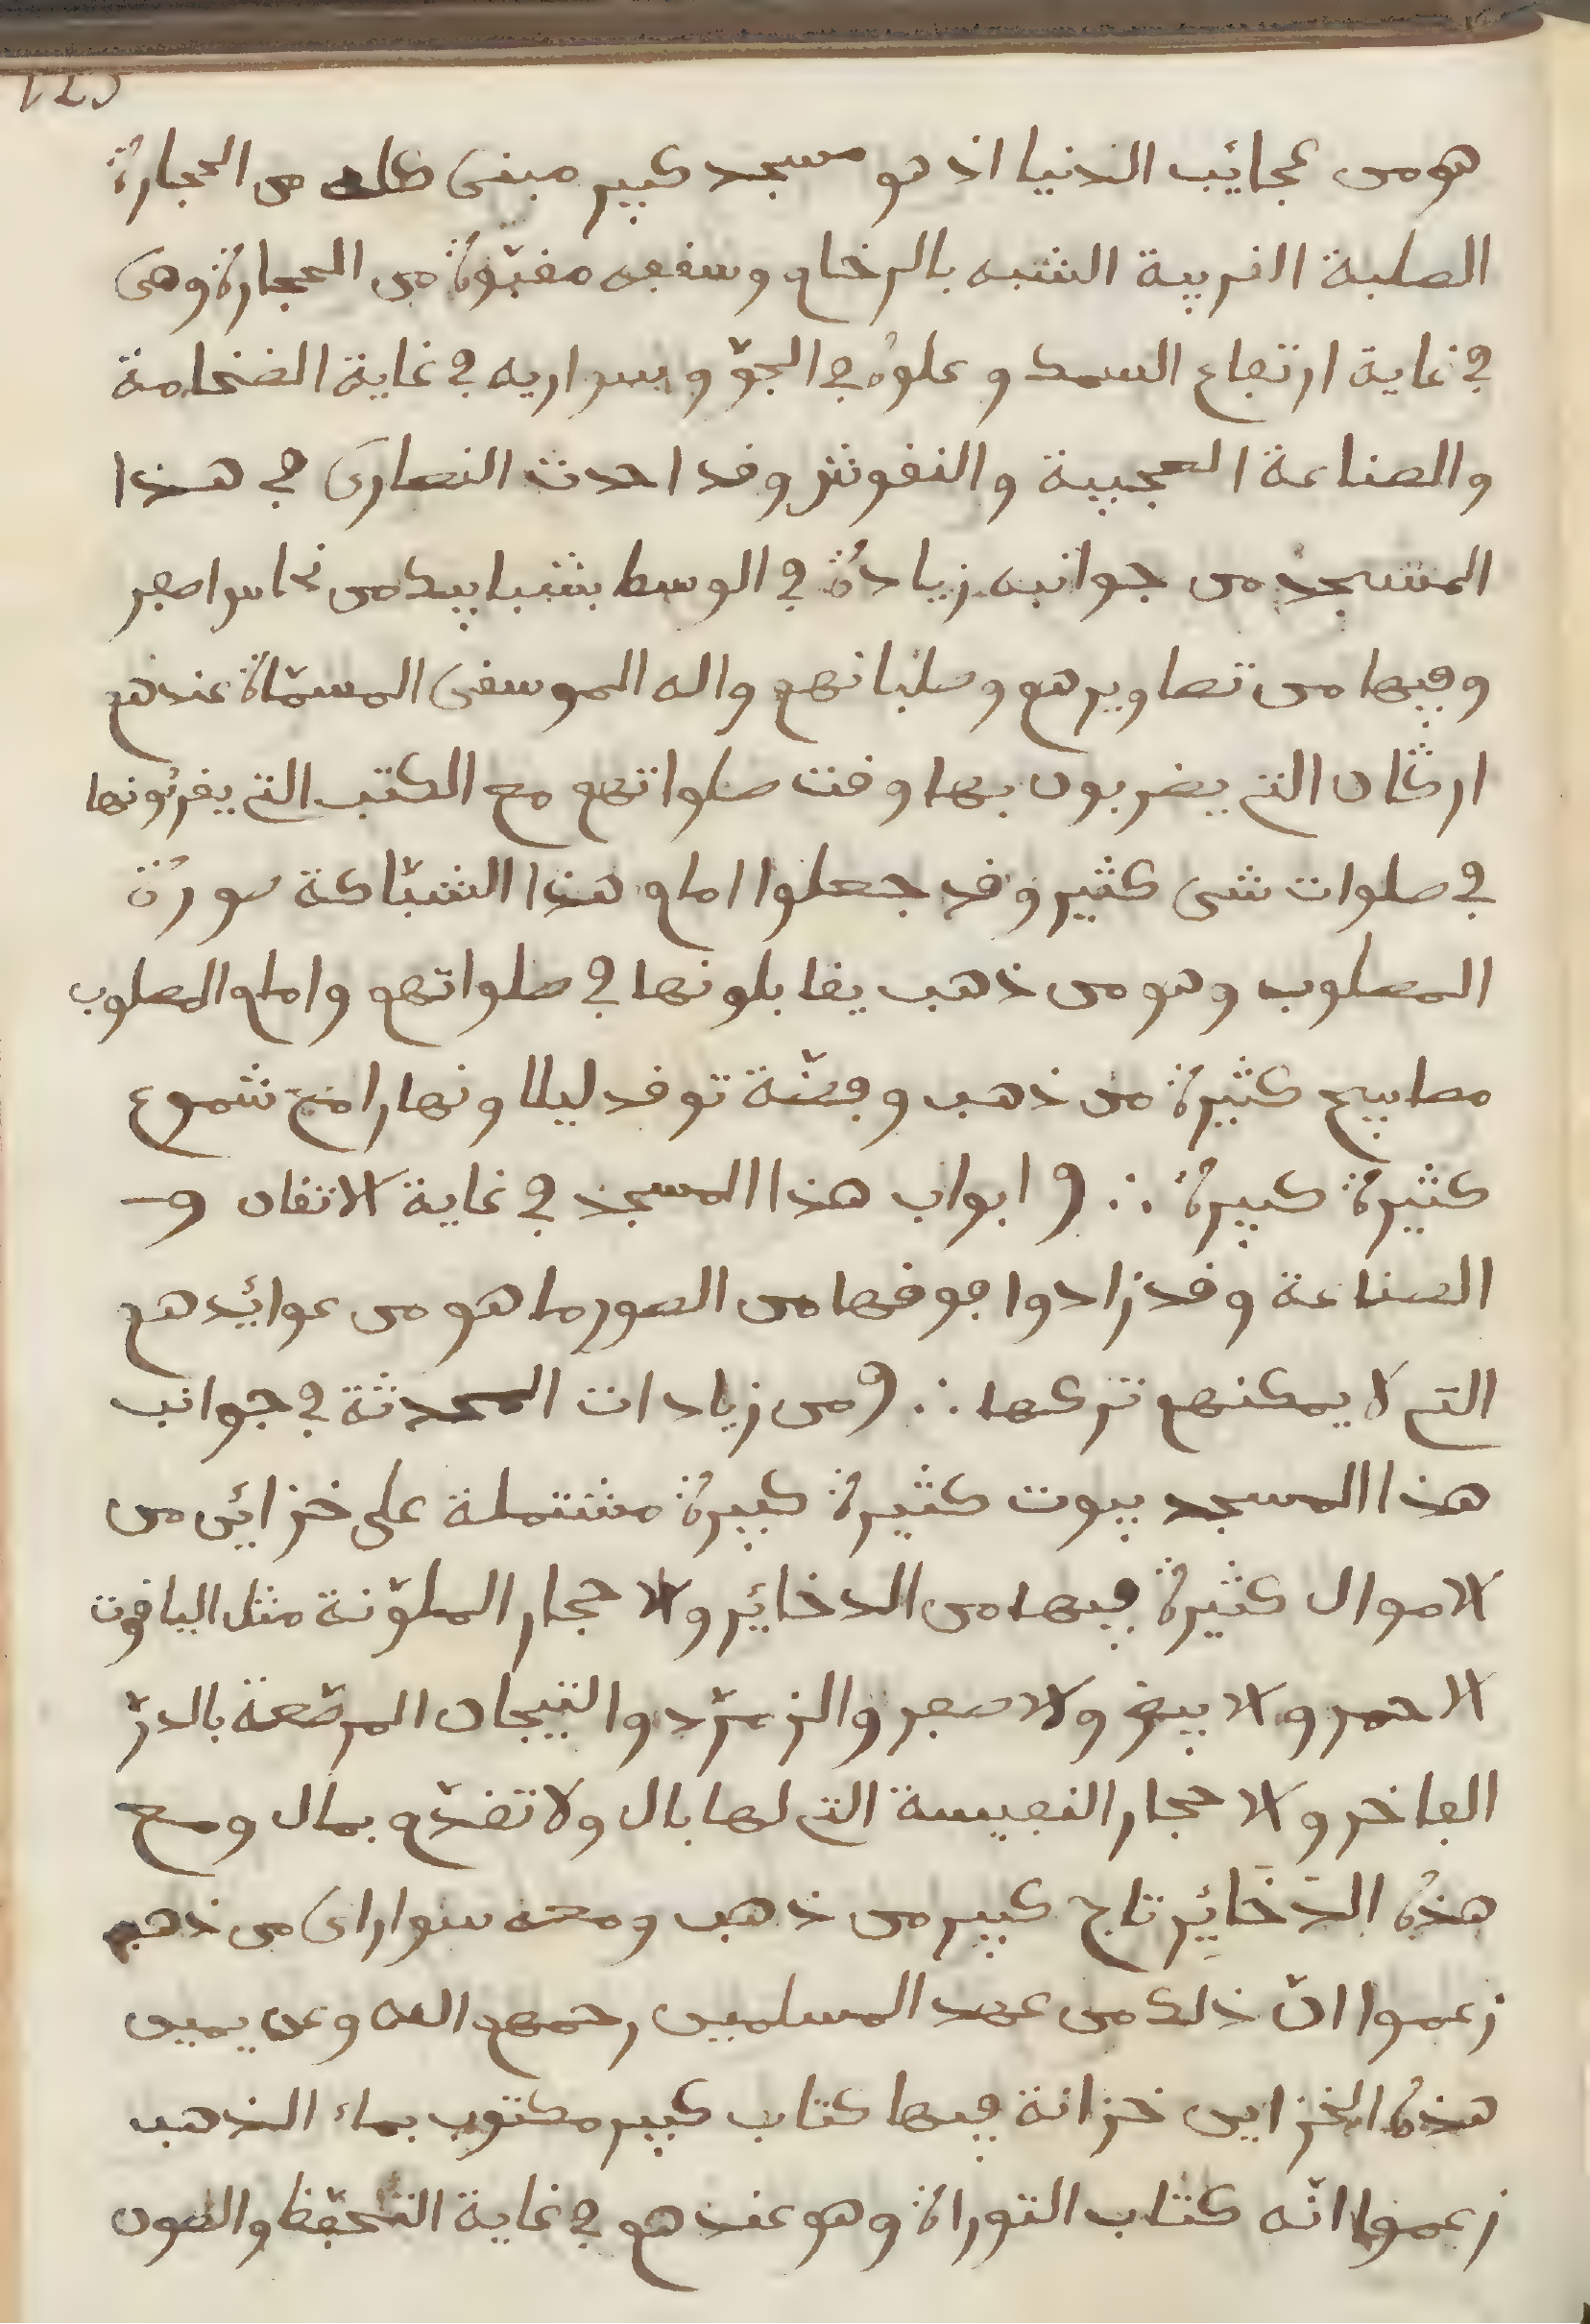 هو من عجائب الدنيا اذ هو مسجد كبير مبنى كله من الحجارة
الصلبة القريبة الشبه بالرخام وسقفه مقبّوة من الحجارة وهى
في غاية ارتفاع السمك وعلوه في الجوّ وسواريه في غاية الضخامة
والصناعة العجيبة والنقوش وقد احدث النصارى في هذا
المسجد من جوانبه زيادة في الوسط بشبابيك من نحاس اصفر
وفيها من تصاويرهم وصلبانهم واله الموسقى المسمّاة عندهم
ارڭان التي يضربون بها وقت صلواتهم مع الكتب التي يقرئونها
في صلوات شى كثير وقد جعلوا امام هذا الشبّاكة صورة
المصلوب وهو من ذهب يقابلونها في صلواتهم وامام المصلوب
مصابيح كثيرة من ذهب وفضّة توقد ليلا ونهارا مع شموع
كثيرة كبيرة ∴ وابواب هذا المسجد في غاية الاتقان و
الصناعة وقد زادوا فوقها من الصور ما هو من عوائيدهم
التي لا يمكنهم تركها ∴ ومن زيادات المحدثة في جوانب
هذا المسجد بيوت كثيرة كبيرة مشتملة على خزائن من
الاموال كثيرة فيها من الدخائر والاحجار الملوّنة مثل الياقوت
الاحمر والابيض والاصفر والزمرّد والتيجان المرصّعة بالدرّ
الفاخر والاحجار النفيسة التي لها بال ولا تقدّم بمال ومع
هذه الدَخَائِر تاج كبير من ذهب ومعه سواران من ذهب
زعموا انّ ذلك من عهد المسلمين رحمهم الله وعن يمين
هذه الخزاين خزانة فيها كتاب كبير مكتوب بماء الذهب
زعموا انّه كتاب التوراة وهو عندهم في غاية التحفّظ والصون